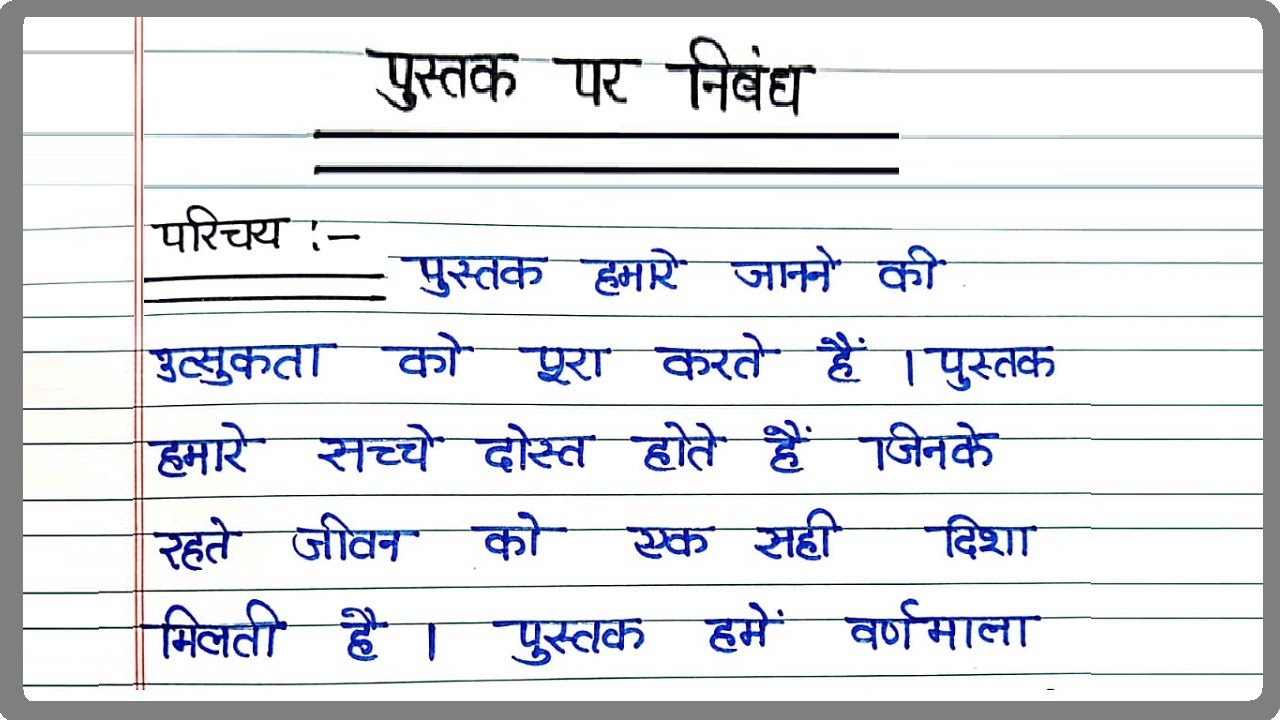 पुस्तक पर निबंध
परिचय :-
पुस्तक हमारे जानने की
उत्सुकता को पूरा करते हैं । पुस्तक
हमारे सच्चे दोस्त होते हैं जिनके
रहते जीवन को एक सही दिशा
मिलती है । पुस्तक हमें वर्णमाला